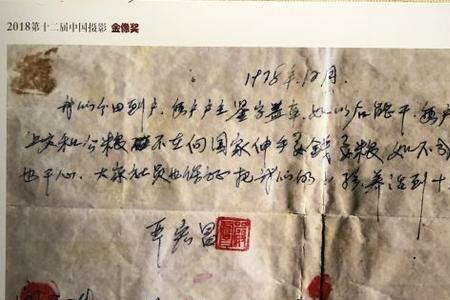 2018第十二届中国摄影 金像奖
1978年12月.
我们分田到户,每户户主鉴字盖章,如以后能干,每户
上交和公粮 不在向国家伸手要钱要粮,如不
也干心,大家社员也保证把我们的小孩养活到十
严宏昌